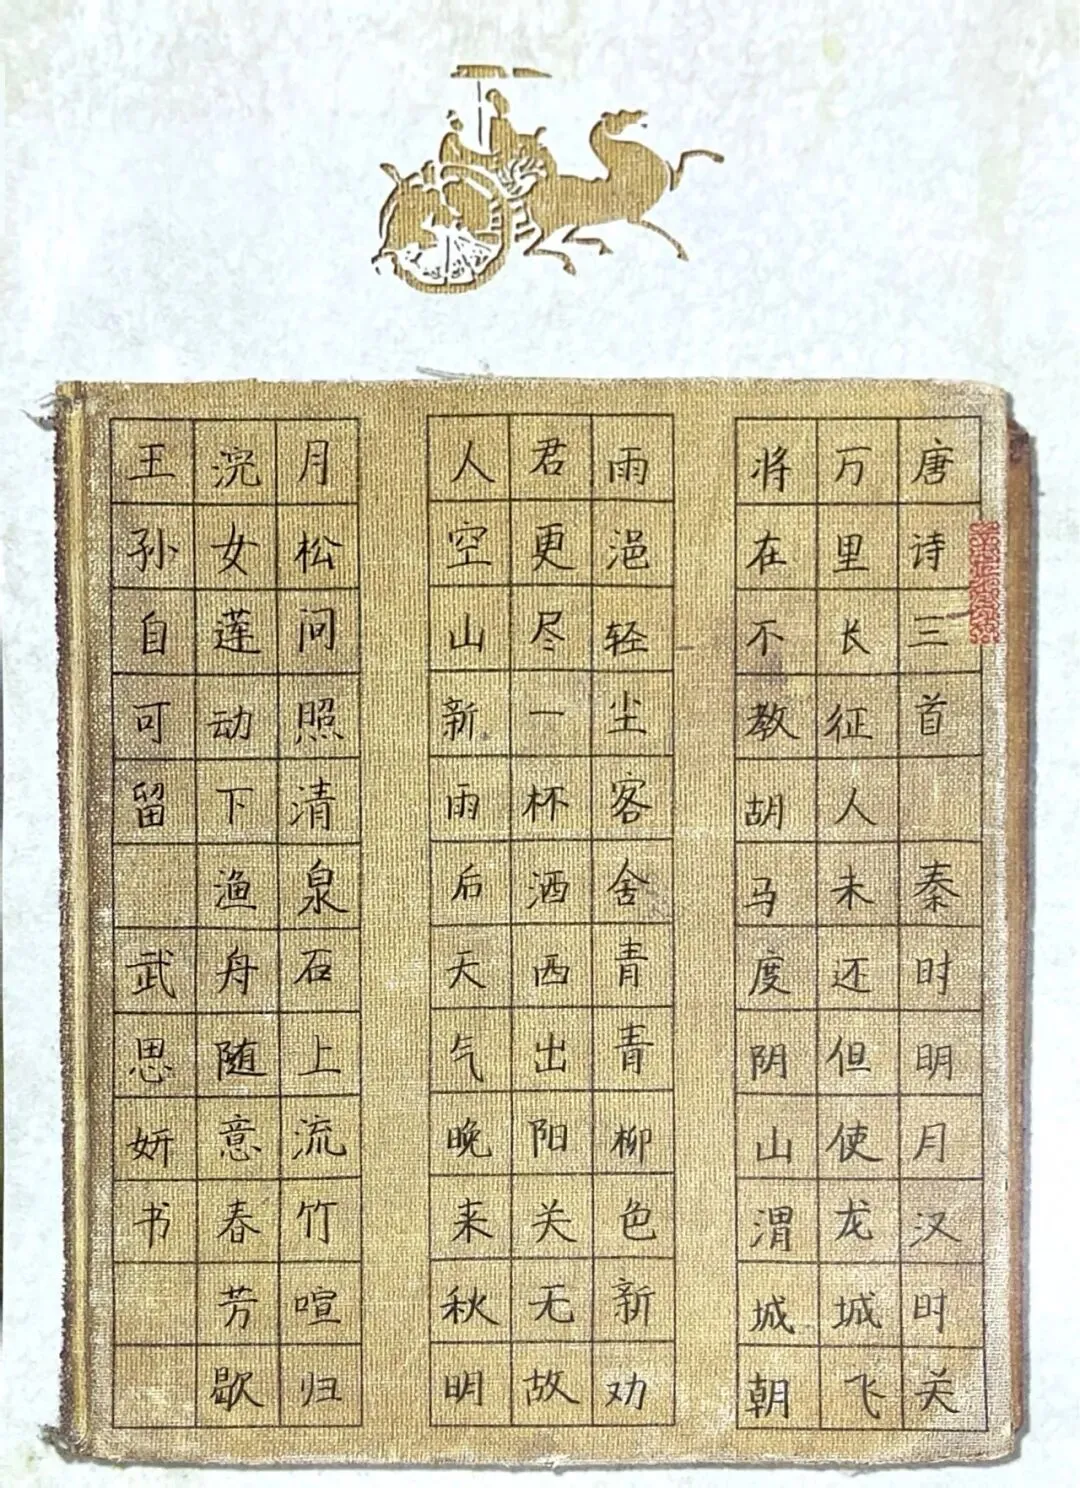 唐诗三首 秦时明月汉时关
万里长征人未还但使龙城飞
将在不教胡马度阴山渭城朝
雨浥轻尘客舍青青柳色新劝
君更尽一杯酒西出阳关无故
人空山新雨后天气晚来秋明
月松间照清泉石上流竹喧归
浣女莲动下渔舟随意春芳歇
王孙自可留 武思妍书